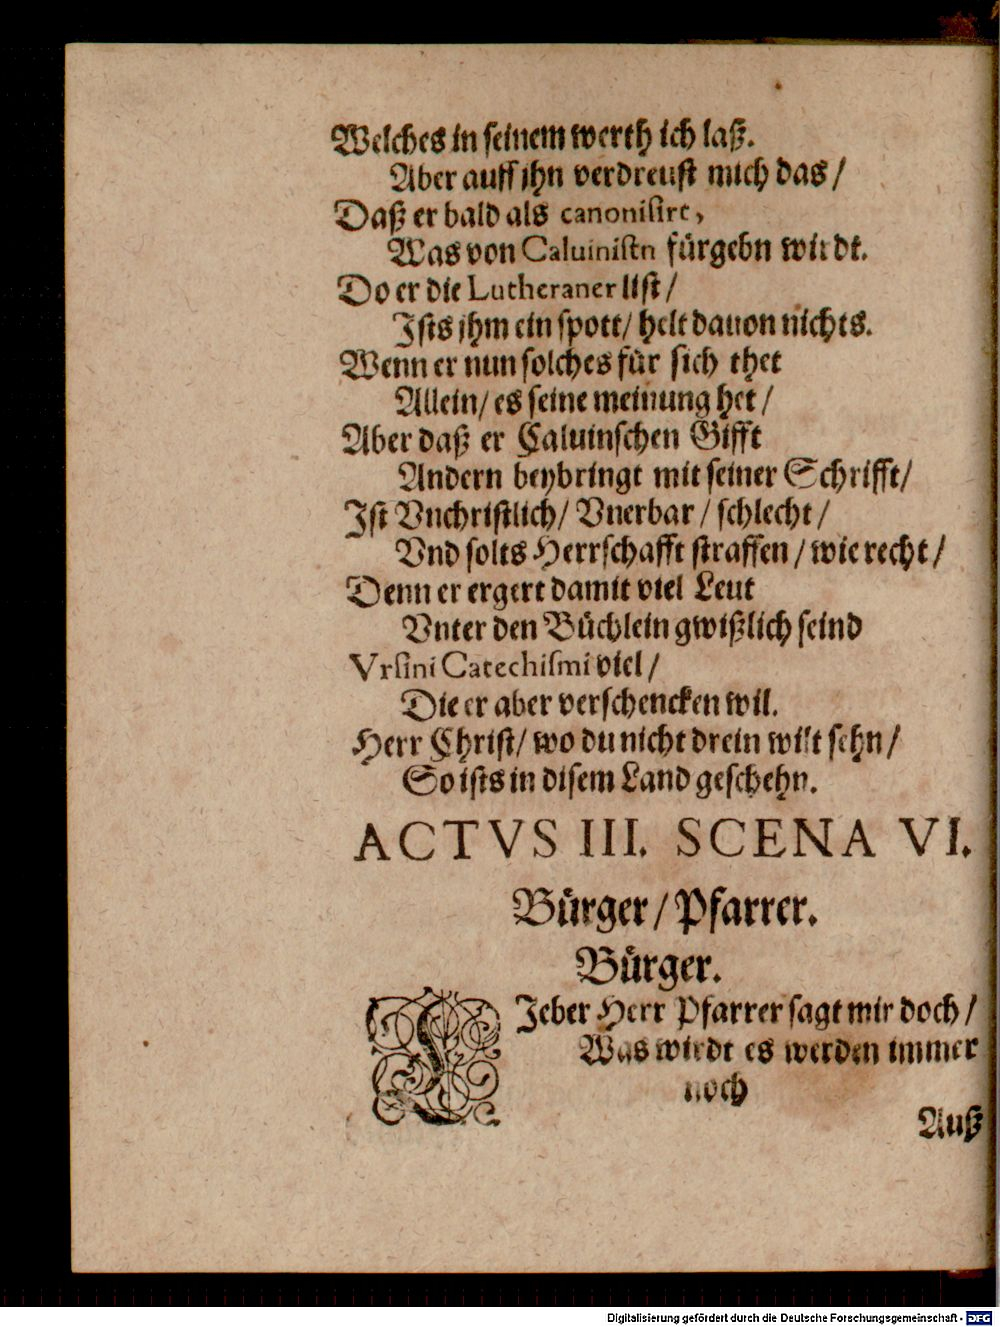 Welches in seinem werth ich laß.
Aber auff jhn verdreust mich das /
Daß er bald als canonisirt,
Was von Caluinistn fürgebn wirdt.
Do er die Lutheraner list /
Ists jhm ein spott / helt dauon nichts.
Wenn er nun solches für sich thet
Allein / es seine meinung het /
Aber daß er Caluinschen Gifft
Andern beybringt mit seiner Schrifft /
Ist Vnchristlich / Vnerbar / schlecht /
Vnd solts Herrschafft straffen / wie recht /
Denn er ergert damit viel Leut
Vnter den Büchlein gwißlich seind
Vrsini Catechismi viel /
Die er aber verschencken wil.
Herr Christ / wo du nicht drein wilt sehn /
So ists in disem Land geschehn.
ACTVS III. SCENA VI.
Bürger / Pfarrer.
Bürger.
LIeber Herr Pfarrer sagt mir doch /
Was wirdt es werden immer
noch
Auß
Digitalisierung gefördert durch die Deutsche Forschungsgemeinschaft - DFG